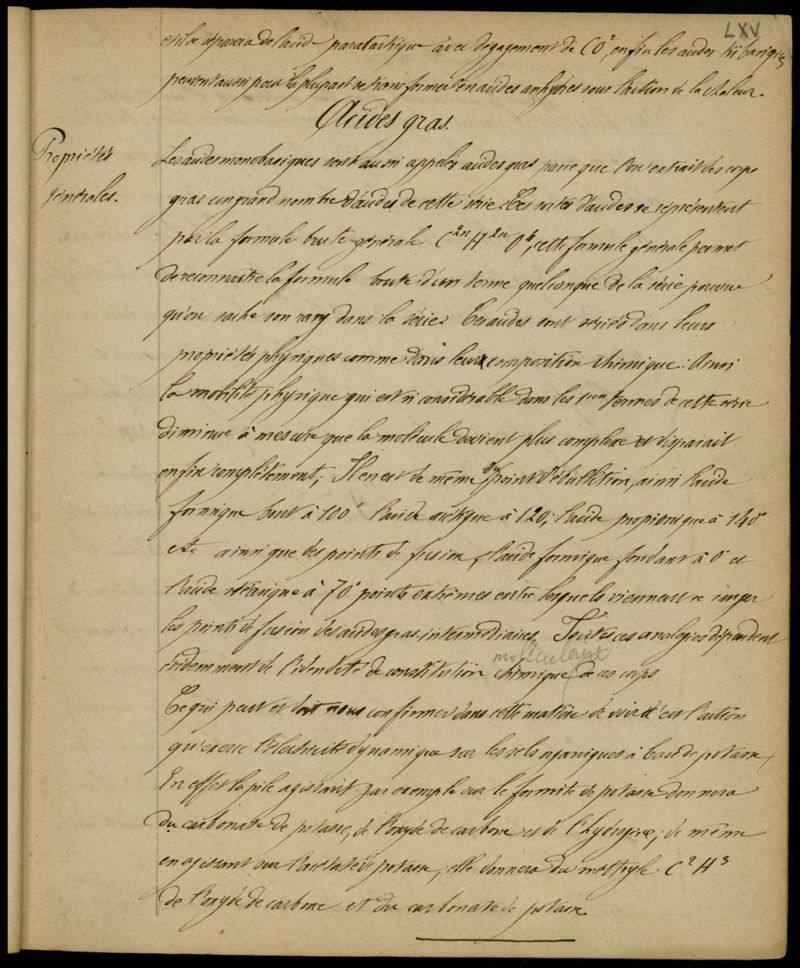 LXV
et il se séparera de l'acide paratartrique avec dégagement de CO², enfin les acides tribasiques
peuvent aussi pour la plupart se transformer en acides anhydres sous l'action de la chaleur.
Acides gras.
Propriétés
générales.
Les acides monobasiques sont aussi appelés acides gras parce que l'on extrait des corps
gras un grand nombre d'acides de cette série. Ces sortes d'acides se représentent
par la formule brute générale C²ⁿ H²ⁿ O⁴, cette formule générale permet
de reconnaitre la formule brute d'un terme quelconque de la série pourvu
qu'on sache son rang dans la série. Ces acides sont sériés dans leurs
propriétés physiques comme dans leur composition chimique: Ainsi
la mobilité physique qui est si considérable dans les 1ers termes de cette série
diminue à mesure que la molécule devient plus complexe et disparait
enfin complètement; Il en est de même du point d'ébullition, ainsi l'acide
formique bout à 100° l'acide acétique à 120; l'acide propionique à 140°
etc ainsi que des points de fusion, l'acide formique fondant à 0° et
l'acide stéarique à 70° points extrêmes entre lesquels viennent se ranger
les points de fusion des acides gras intermédiaires. Toutes ces analogies dépendent
évidemment de l'identité de constitution chimique de ces corps
moléculaire
Ce qui peut et doit nous confirmer dans cette manière de voir c'est l'action
qu'exerce l'électricité dynamique sur les sels organiques à base de potasse;
En effet la pile agissant par exemple sur le formite de potasse donnera
du carbonate de potasse, de l'oxyde de carbone et de l'hydrogène; de même
en agissant sur l'acétate de potasse, elle donnera du méthyle C² H³
de l'oxyde de carbone et du carbonate de potasse